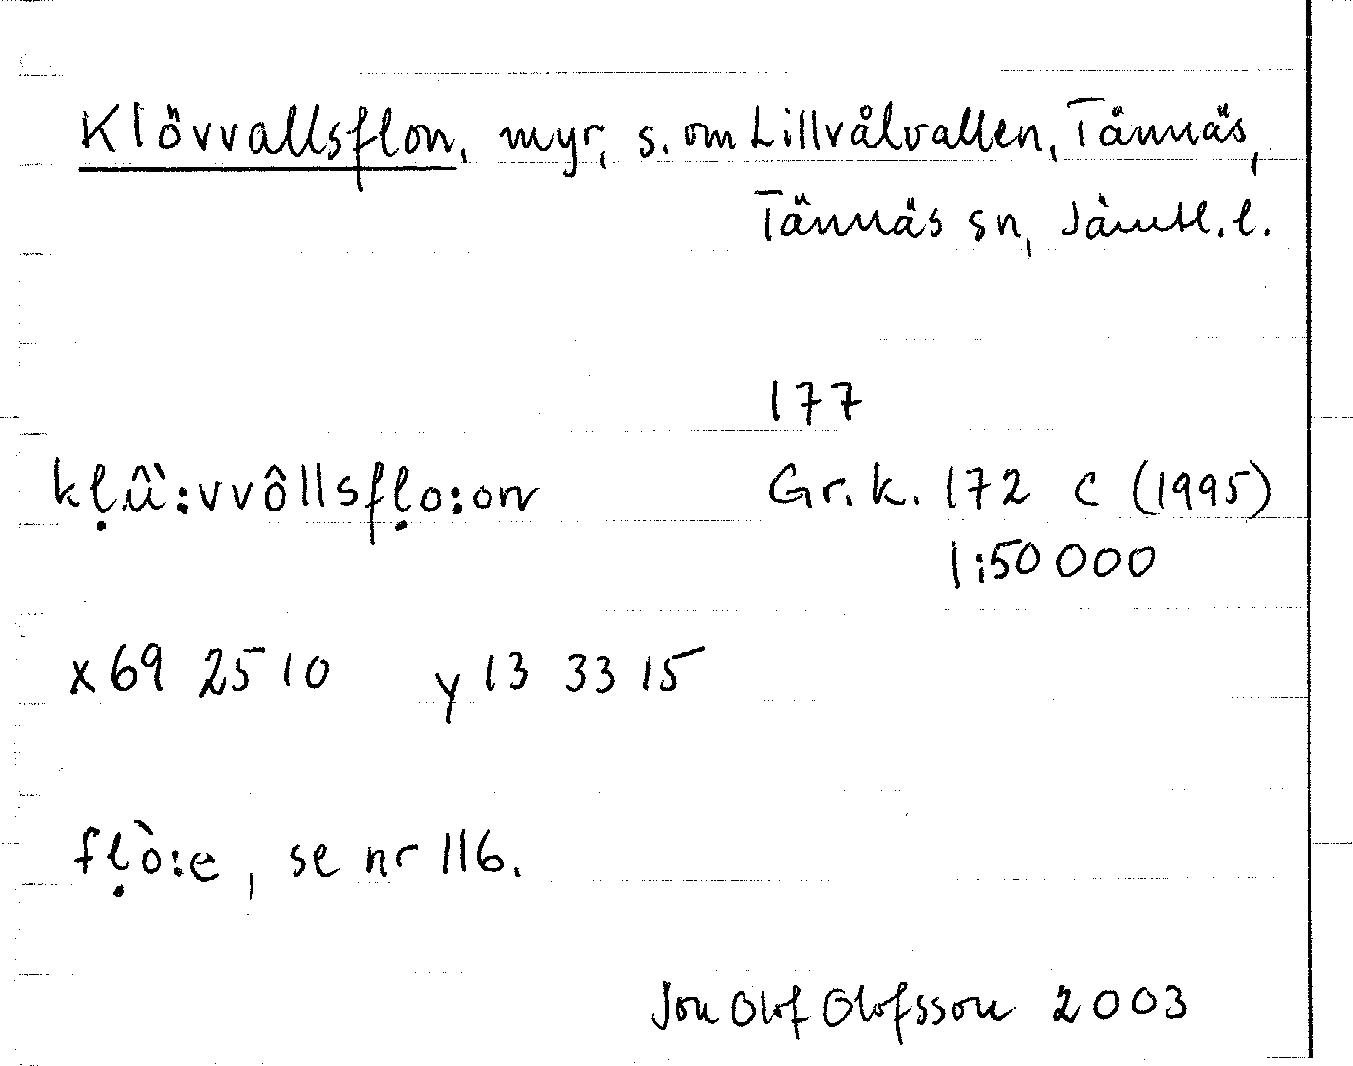 Klövvallsflon, myr, s. om Lillvålvallen, Tännäs,
Tännäs sn, Jämtl. l.
177
kḷû̀:vvôllsfḷo:on
Gr.k. 172 C (1995)
1:50 000
x 69 25 10 y 13 33 15
fḷò:e, se nr 116.
Jon Olof Olofsson 2003